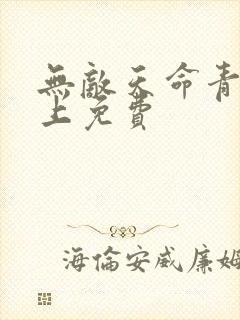 無敵天命青
上免費
海倫安威廉姆